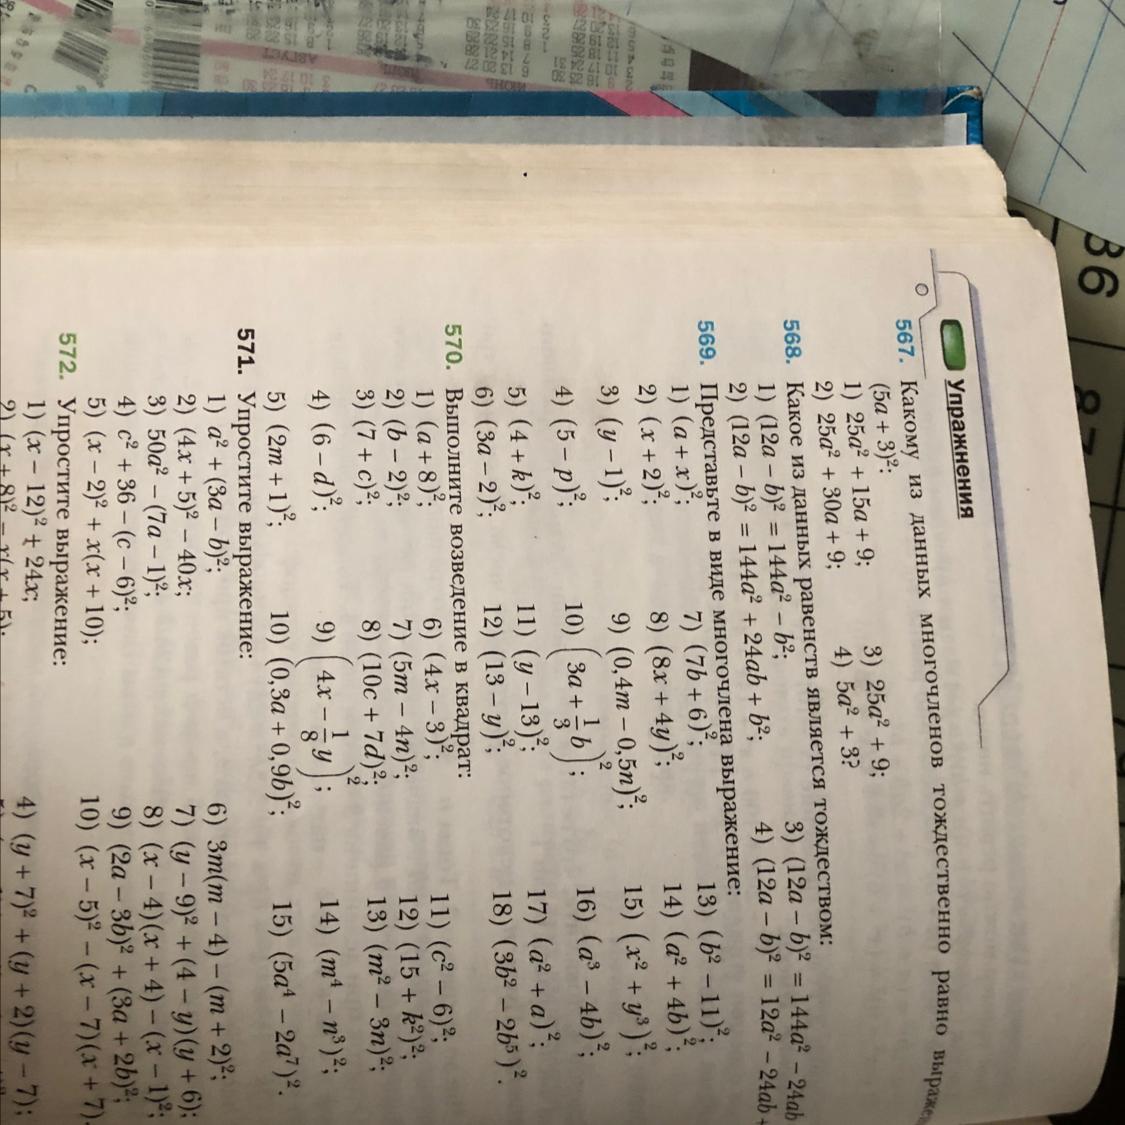 Упражнения
567. Какому из данных многочленов тождественно равно
(5a + 3)²:
1) 25a² + 15a + 9; 3) 25a² + 9;
2) 25a² + 30a + 9; 4) 5a² + 3?
568. Какое из данных равенств является тождеством:
1) (12a − b)² = 144a² − b²; 3) (12a − b)² = 144a² − 24ab
2) (12a − b)² = 144a² + 24ab + b²; 4) (12a − b)² = 12a² − 24ab +
569. Представьте в виде многочлена выражение:
1) (a + x)²; 7) (7b + 6)²; 13) (b² − 11)²;
2) (x + 2)²; 8) (8x + 4y)²; 14) (a² + 4b)²;
3) (y − 1)²; 9) (0,4m − 0,5n)²; 15) (x² + y³)²;
4) (5 − p)²; 10) (3a + 1/3 b)²; 16) (a³ − 4b)²;
5) (4 + k)²; 11) (y − 13)²; 17) (a² + a)²;
6) (3a − 2)²; 12) (13 − y)²; 18) (3b² − 2b⁵)².
570. Выполните возведение в квадрат:
1) (a + 8)²; 6) (4x − 3)²; 11) (c² − 6)²;
2) (b − 2)²; 7) (5m − 4n)²; 12) (15 + k²)²;
3) (7 + c)²; 8) (10c + 7d)²; 13) (m² − 3n)²;
4) (6 − d)²; 9) (4x − 1/8 y)²; 14) (m⁴ − n³)²;
5) (2m + 1)²; 10) (0,3a + 0,9b)²; 15) (5a⁴ − 2a⁷)².
571. Упростите выражение:
1) a² + (3a − b)²; 6) 3m(m − 4) − (m + 2)²;
2) (4x + 5)² − 40x; 7) (y − 9)² + (4 − y)(y + 6);
3) 50a² − (7a − 1)²; 8) (x − 4)(x + 4) − (x − 1)²;
4) c² + 36 − (c − 6)²; 9) (2a − 3b)² + (3a + 2b)²;
5) (x − 2)² + x(x + 10); 10) (x − 5)² − (x − 7)(x + 7).
572. Упростите выражение:
1) (x − 12)² + 24x; 4) (y + 7)² + (y + 2)(y − 7);
2) (x + 8)² − x(x + 5);
36
87
АВГУСТ
ИЮНЬ